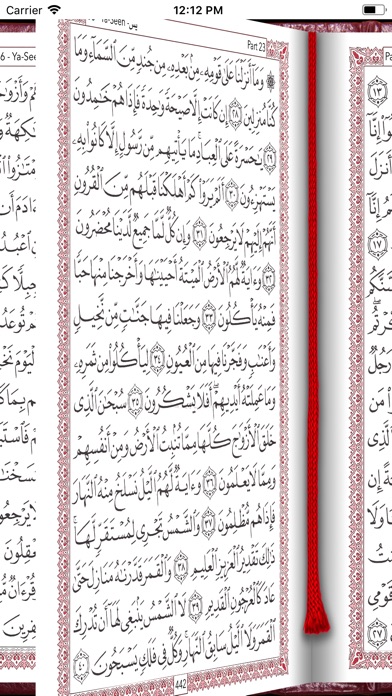 Carrier 12:12 PM
6 - Ya-Seen
Ya-Seen - يس
Part 23
۞ وَمَآ أَنزَلْنَا عَلَىٰ قَوْمِهِۦ مِنۢ بَعْدِهِۦ مِن جُندٍ مِّنَ ٱلسَّمَآءِ وَمَا
كُنَّا مُنزِلِينَ ٢٨ إِن كَانَتْ إِلَّا صَيْحَةً وَٰحِدَةً فَإِذَا هُمْ خَٰمِدُونَ
٢٩ يَٰحَسْرَةً عَلَى ٱلْعِبَادِ ۚ مَا يَأْتِيهِم مِّن رَّسُولٍ إِلَّا كَانُوا۟ بِهِۦ
يَسْتَهْزِءُونَ ٣٠ أَلَمْ يَرَوْا۟ كَمْ أَهْلَكْنَا قَبْلَهُم مِّنَ ٱلْقُرُونِ
أَنَّهُمْ إِلَيْهِمْ لَا يَرْجِعُونَ ٣١ وَإِن كُلٌّ لَّمَّا جَمِيعٌ لَّدَيْنَا مُحْضَرُونَ
٣٢ وَءَايَةٌ لَّهُمُ ٱلْأَرْضُ ٱلْمَيْتَةُ أَحْيَيْنَٰهَا وَأَخْرَجْنَا مِنْهَا حَبًّا
فَمِنْهُ يَأْكُلُونَ ٣٣ وَجَعَلْنَا فِيهَا جَنَّٰتٍ مِّن نَّخِيلٍ
وَأَعْنَٰبٍ وَفَجَّرْنَا فِيهَا مِنَ ٱلْعُيُونِ ٣٤ لِيَأْكُلُوا۟ مِن ثَمَرِهِۦ
وَمَا عَمِلَتْهُ أَيْدِيهِمْ ۖ أَفَلَا يَشْكُرُونَ ٣٥ سُبْحَٰنَ ٱلَّذِى
خَلَقَ ٱلْأَزْوَٰجَ كُلَّهَا مِمَّا تُنۢبِتُ ٱلْأَرْضُ وَمِنْ أَنفُسِهِمْ
وَمِمَّا لَا يَعْلَمُونَ ٣٦ وَءَايَةٌ لَّهُمُ ٱلَّيْلُ نَسْلَخُ مِنْهُ ٱلنَّهَارَ
فَإِذَا هُم مُّظْلِمُونَ ٣٧ وَٱلشَّمْسُ تَجْرِى لِمُسْتَقَرٍّ لَّهَا ۚ
ذَٰلِكَ تَقْدِيرُ ٱلْعَزِيزِ ٱلْعَلِيمِ ٣٨ وَٱلْقَمَرَ قَدَّرْنَٰهُ مَنَازِلَ حَتَّىٰ
عَادَ كَٱلْعُرْجُونِ ٱلْقَدِيمِ ٣٩ لَا ٱلشَّمْسُ يَنۢبَغِى لَهَآ أَن تُدْرِكَ
ٱلْقَمَرَ وَلَا ٱلَّيْلُ سَابِقُ ٱلنَّهَارِ ۚ وَكُلٌّ فِى فَلَكٍ يَسْبَحُونَ ٤٠
442